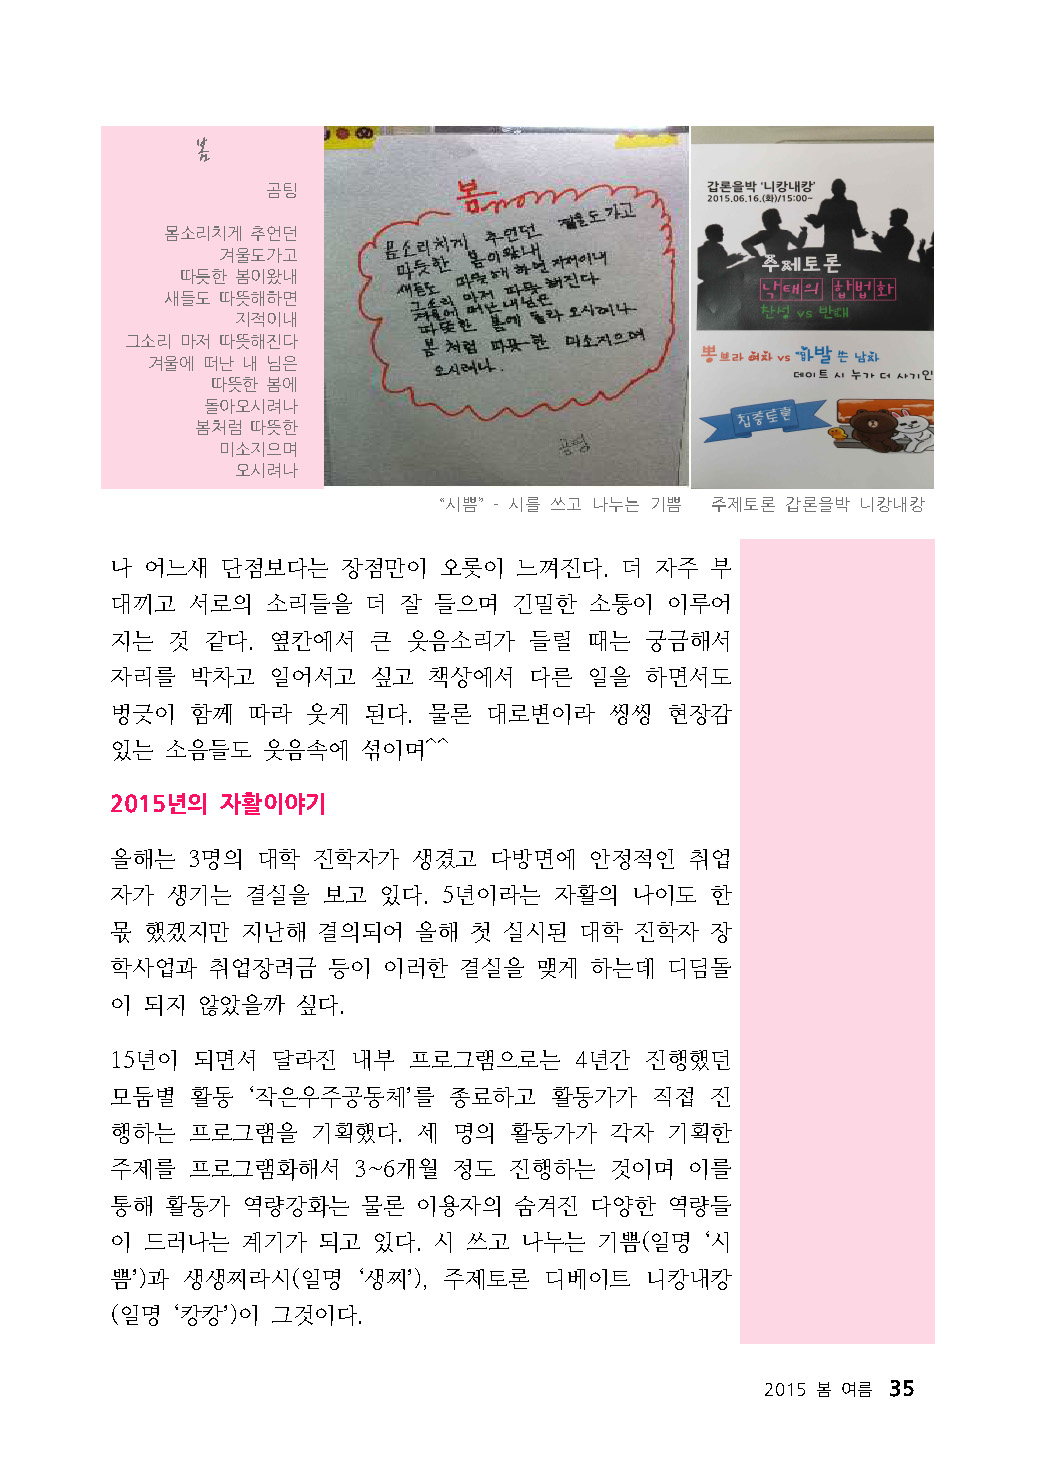 봄
곰팅
몸소리치게 추언던
겨울도가고
따듯한 봄이왔내
새들도 따뜻해하면
지적이내
그소리 마저 따뜻해진다
겨울에 떠난 내 님은
따뜻한 봄에
돌아오시려나
봄처럼 따뜻한
미소지으며
오시려나
봄
몸소리치게 추언던 겨울도가고
따듯한 봄이왔내
새들도 따뜻해 하면 지저이내
그소리 마저 따뜻해진다
겨울에 떠난내님은
따뜻한 봄에 돌라 오시려나
봄 처럼 따뜻한 미소지으며
오시려나.
갑론을박 '니캉내캉'
2015.06.16.(화)/15:00~
주제토론
낙태의 합법화
찬성 vs 반대
뽕브라 여자 vs 깔창 쓴 남자
데이트 시 누가 더 사기인
집중토론
“시쁨” - 시를 쓰고 나누는 기쁨
주제토론 갑론을박 니캉내캉
나 어느새 단점보다는 장점만이 오롯이 느껴진다. 더 자주 부
대끼고 서로의 소리들을 더 잘 들으며 긴밀한 소통이 이루어
지는 것 같다. 옆칸에서 큰 웃음소리가 들릴 때는 궁금해서
자리를 박차고 일어서고 싶고 책상에서 다른 일을 하면서도
벙긋이 함께 따라 웃게 된다. 물론 대로변이라 씽씽 현장감
있는 소음들도 웃음속에 섞이며^^
2015년의 자활이야기
올해는 3명의 대학 진학자가 생겼고 다방면에 안정적인 취업
자가 생기는 결실을 보고 있다. 5년이라는 자활의 나이도 한
몫 했겠지만 지난해 결의되어 올해 첫 실시된 대학 진학자 장
학사업과 취업장려금 등이 이러한 결실을 맺게 하는데 디딤돌
이 되지 않았을까 싶다.
15년이 되면서 달라진 내부 프로그램으로는 4년간 진행했던
모둠별 활동 ‘작은우주공동체’를 종료하고 활동가가 직접 진
행하는 프로그램을 기획했다. 세 명의 활동가가 각자 기획한
주제를 프로그램화해서 3~6개월 정도 진행하는 것이며 이를
통해 활동가 역량강화는 물론 이용자의 숨겨진 다양한 역량들
이 드러나는 계기가 되고 있다. 시 쓰고 나누는 기쁨(일명 ‘시
쁨’)과 생생찌라시(일명 ‘생찌’), 주제토론 디베이트 니캉내캉
(일명 ‘캉캉’)이 그것이다.
2015 봄 여름 35